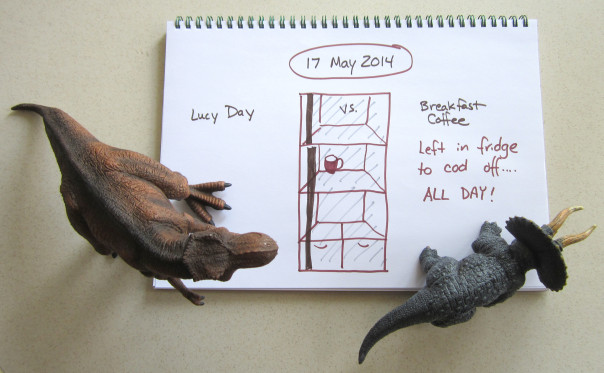 17 May 2014
Lucy Day
vs.
Breakfast
Coffee
Left in fridge
to cool off....
ALL DAY!